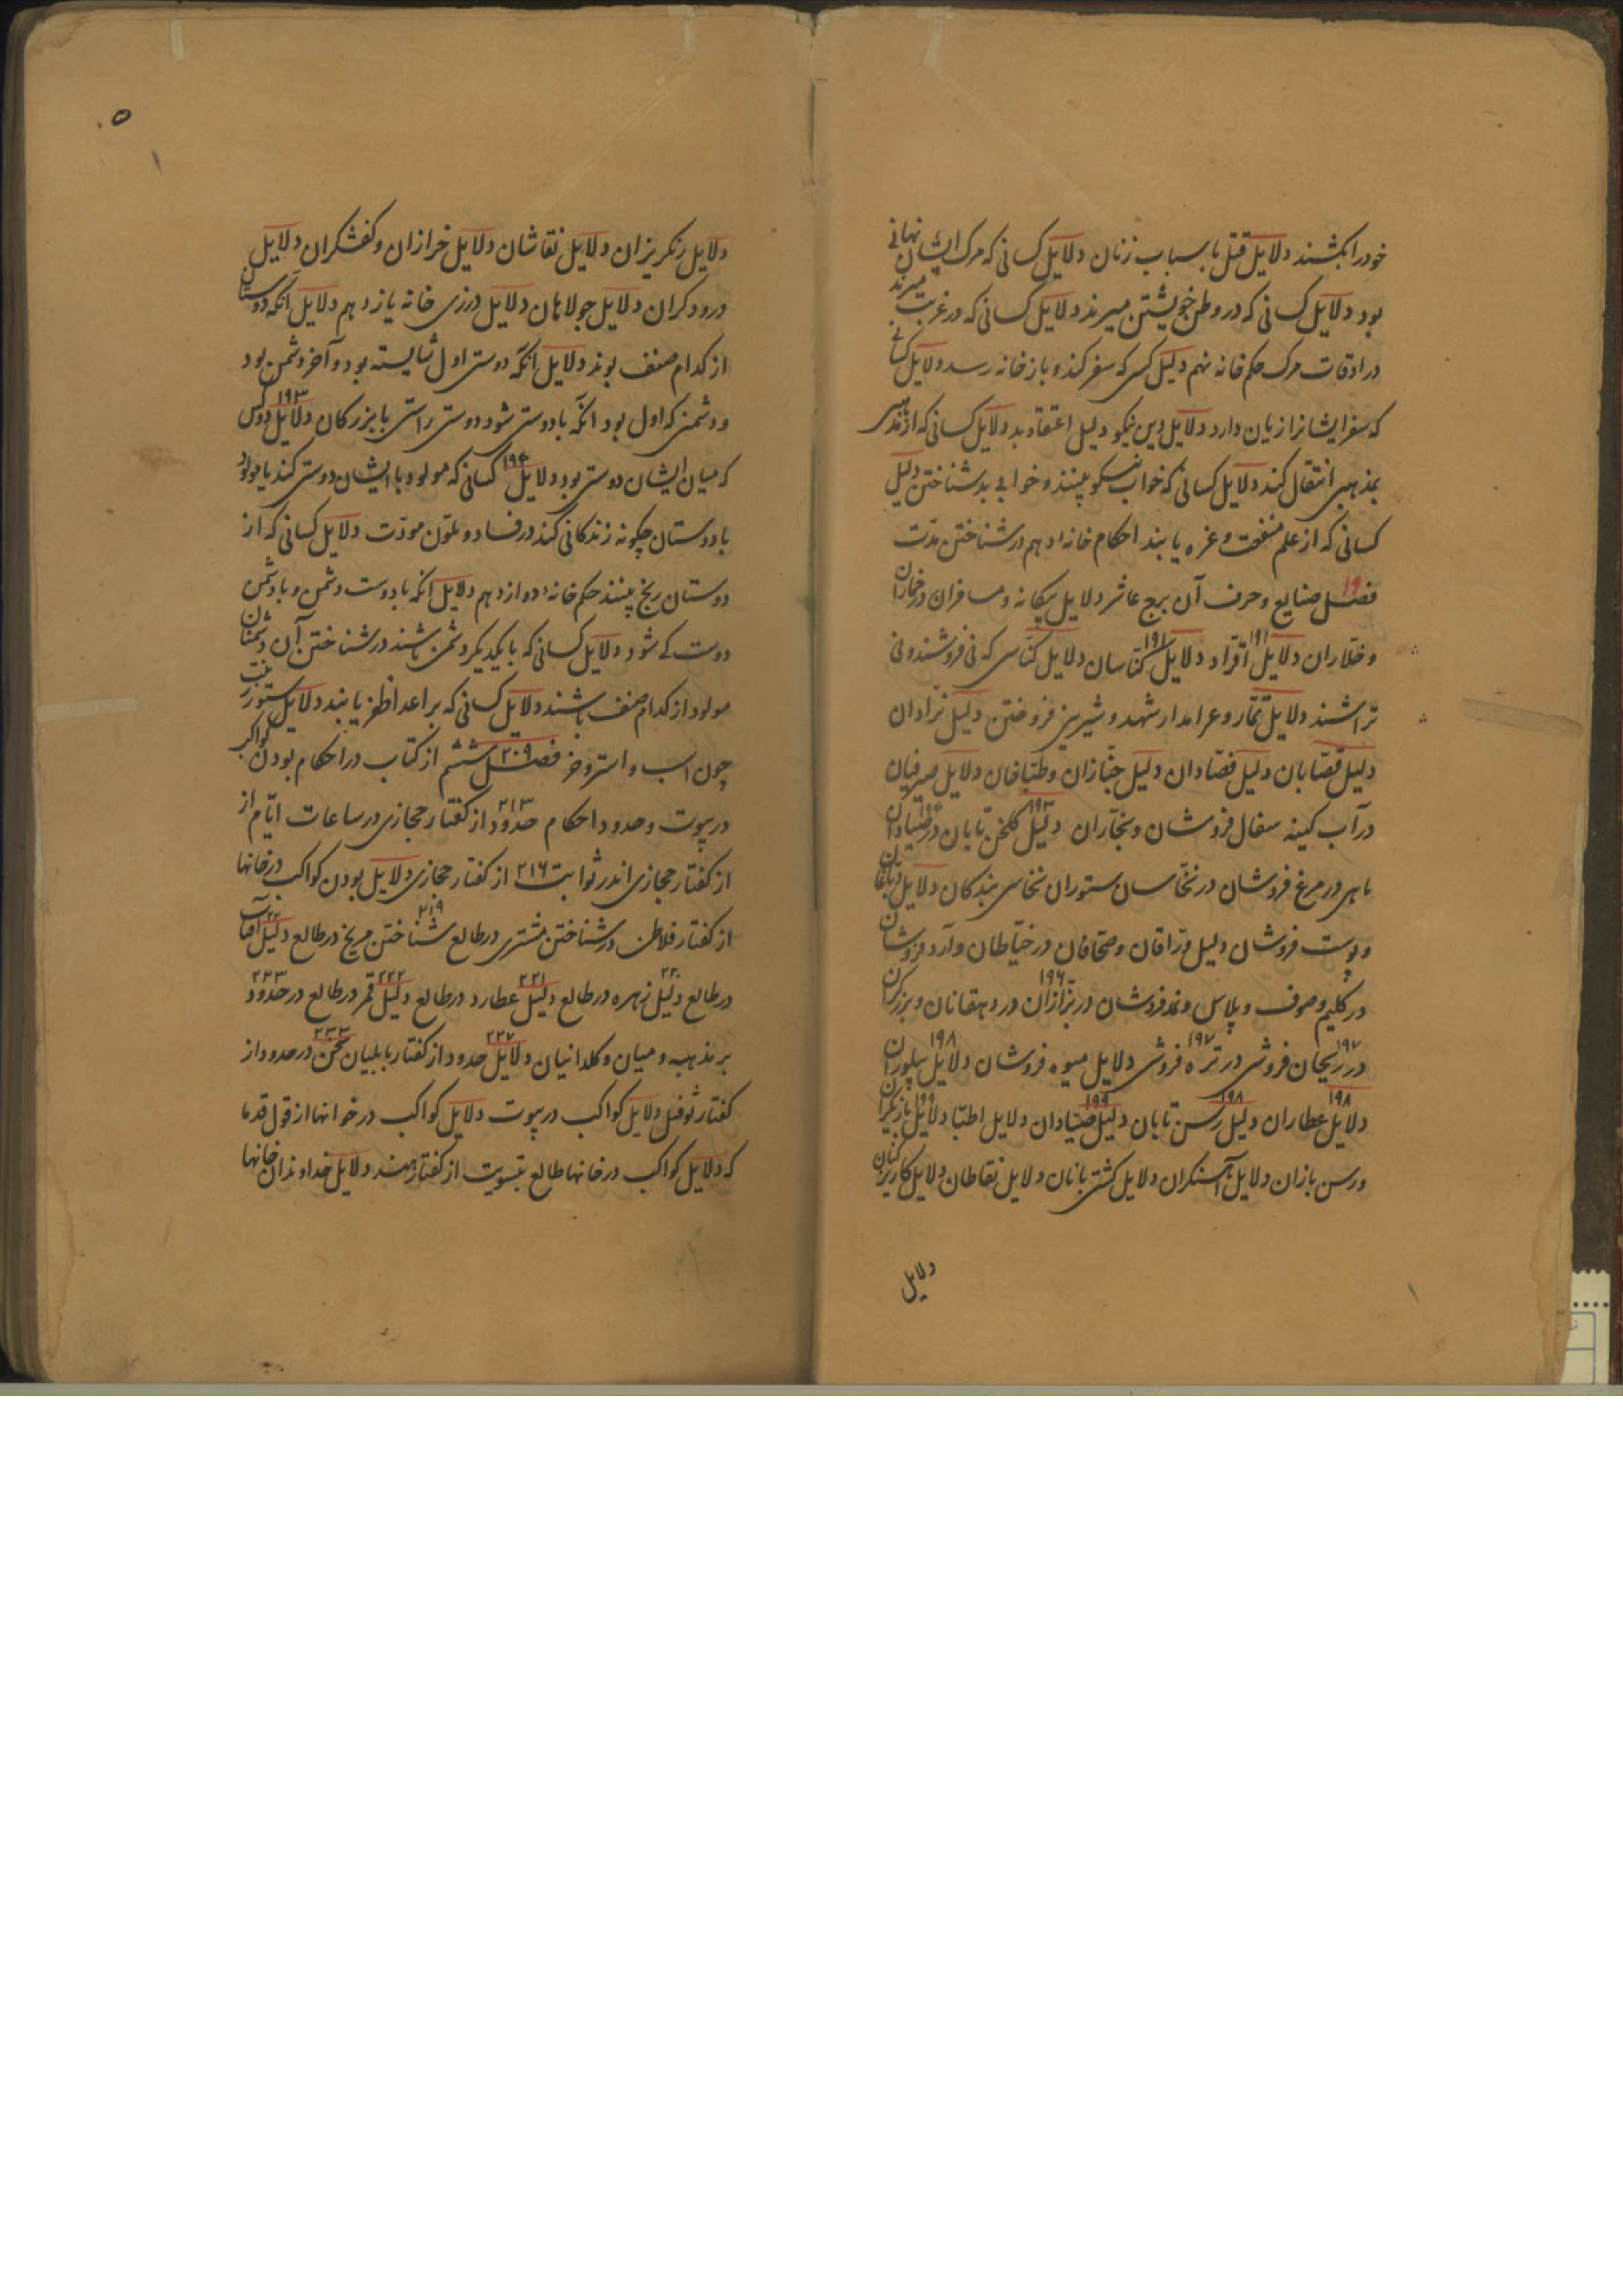 خود را بکشند دلایل قتل با سباب زنان دلایل کسانی که مرک ایشان نهانی
بود دلایل کسانی که در وطن خویشتن میرند دلایل کسانی که در غربت میرند
در اوقات مرک حکم خانه نهم دلیل کسی که سفر کند و باز خانه رسد دلایل کسانی
که سفر ایشانرا زیان دارد دلایل دین نیکو دلیل اعتقاد بد دلایل کسانی که از مذهبی
بمذهبی انتقال کند دلایل کسانی که خواب نیکو بینند و خوابی بد شناختن دلیل
کسانی که از علم منفعت و غره یابند احکام خانه دهم در شناختن مدّت
۱۹
فصل صنایع و حرف آن برج عاشر دلایل بیکانه و مسافران در خماران
و خلاران دلایل ۱۹۱ دلایل ۱۹۱ کنّاسان دلایل کنّاسی که نی فروشند و نی
تراشند دلایل تمّار و شهد و شیریز فروختن دلیل
دلیل قصّابان دلیل فصّادان دلیل خبّازان و طبّاخان دلایل صیرفیان
در آب کینه سفال فروشان و نجّاران دلیل ۱۹۳ کلخن تابان در صیادان ۱۹۴
ماهی در مرغ فروشان در نخّاسان ستوران نخاسی بندکان دلایل دباغان
و پوست فروشان دلیل ورّاقان و صحّافان در خیّاطان و آرد فروشان
در کلیم و صوف و پلاس و نمد فروشان در بزّازان ۱۹۶ در دهقانان و بزرکران
در ریحان فروشی ۱۹۷ در ترّه فروشی ۱۹۷ دلایل میوه فروشان دلایل ۱۹۸ پیلوران
دلایل ۱۹۸ عطاران دلیل ۱۹۸ رسن تابان دلیل ۱۹۹ صیّادان دلایل اطبّا دلایل ۱۹۹ بازیکران
و رسن بازان دلایل آهنکران دلایل کشتی بانان دلایل نقاطان دلایل کاریز کنان
دلایل
۵
دلایل رنکریزان دلایل نقاشان دلایل خرازان و کفشکران دلایل
درودکران دلایل جولاهان دلایل درزی خانه یازدهم دلایل آنکه دوستان
از کدام صنف بوند دلایل آنکه دوستی اول شایسته بود و آخر دشمن بود
و دشمنی که اول بود آنکه با دوستی شود دوستی راستی با بزرکان دلایل ۱۹۳ دو کس
که میان ایشان دوستی بود دلایل ۱۹۴ کسانی که مولود با ایشان دوستی کند یا مولود
با دوستان چکونه زندکانی کند در فساد و تلوّن مودّت دلایل کسانی که از
دوستان رنج بینند حکم خانه دوازدهم دلایل آنکه با دوست دشمن و با دشمن
دوست کے شود دلایل کسانی که با یکدیکر دشمن باشند در شناختن آن دشمنان
مولود از کدام صنف باشند دلایل کسانی که بر اعدا ظفر یابند دلایل ستور
چون اسب و استر و خر فصل ۲۰۹ ششم از کتاب در احکام بودن کواکب
در بیوت و حدود احکام حدود ۲۱۳ از کفتار حجازی در ساعات ایّام از
از کفتار حجازی اندر ثوابت ۲۱۶ از کفتار حجازی دلایل بودن کواکب در خانها
از کفتار فلاطن در شناختن مشتری در طالع شناختن ۲۱۹ مریخ در طالع دلیل آفتاب
در طالع دلیل ۲۲۰ زهره در طالع دلیل ۲۲۱ عطارد در طالع دلیل ۲۲۲ قمر در طالع در حدود ۲۲۳
بر مذهب و میان و کلدانیان دلایل ۲۲۷ حدود از کفتار بابلیان سخن ۲۳۳ در حدود از
کفتار ثوفیل دلایل کواکب در بیوت دلایل کواکب در خوانها از قول قدما
که دلایل کواکب در خانها طالع بتسویت از کفتار هند دلایل خداوندان خانها